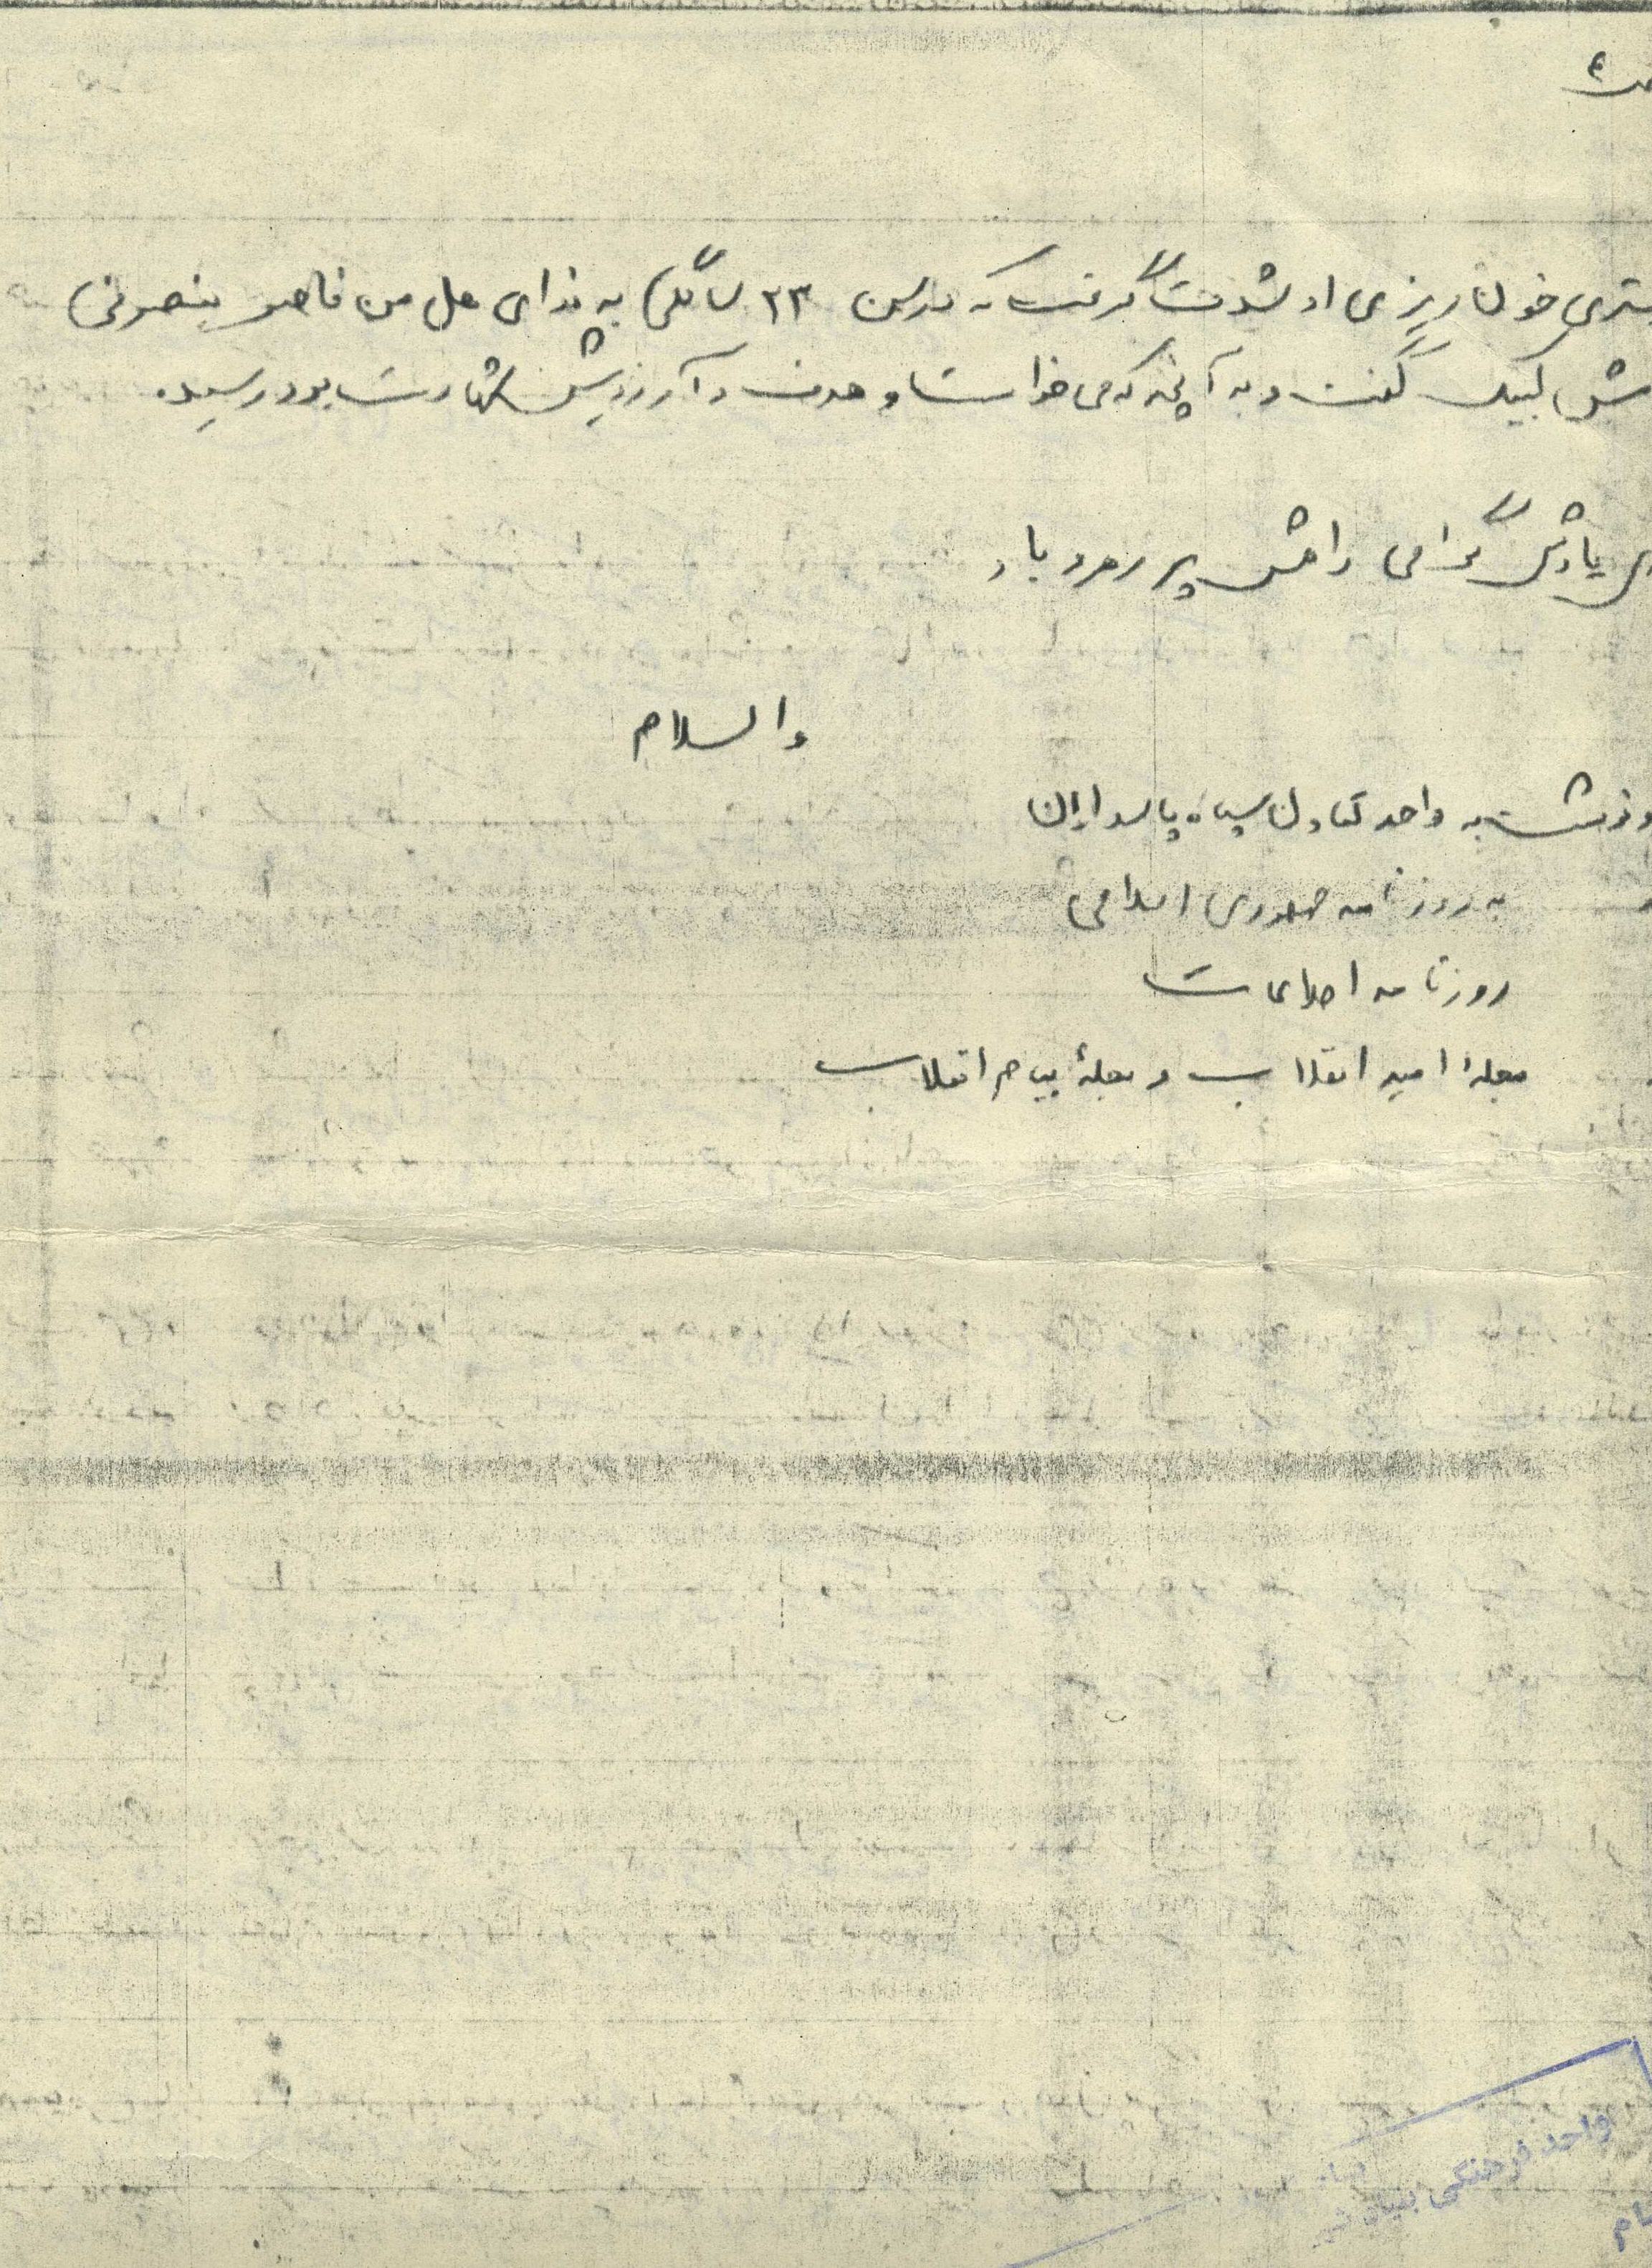 ص ٤
بستری خونریزی او شدت گرفت که در سن ۲۳ سالگی به ندای هل من ناصر ینصرنی
لبیک گفت و به آنچه که می خواست و هدف و آرزویش شهادت بود رسید.
یادش گرامی راهش پر رهرو باد
والسلام
رونوشت به واحد تعاون سپاه پاسداران
به روزنامه جمهوری اسلامی
روزنامه اطلاعات
مجلهٔ امید انقلاب و مجلهٔ پیام انقلاب
واحد فرهنگی بنیاد